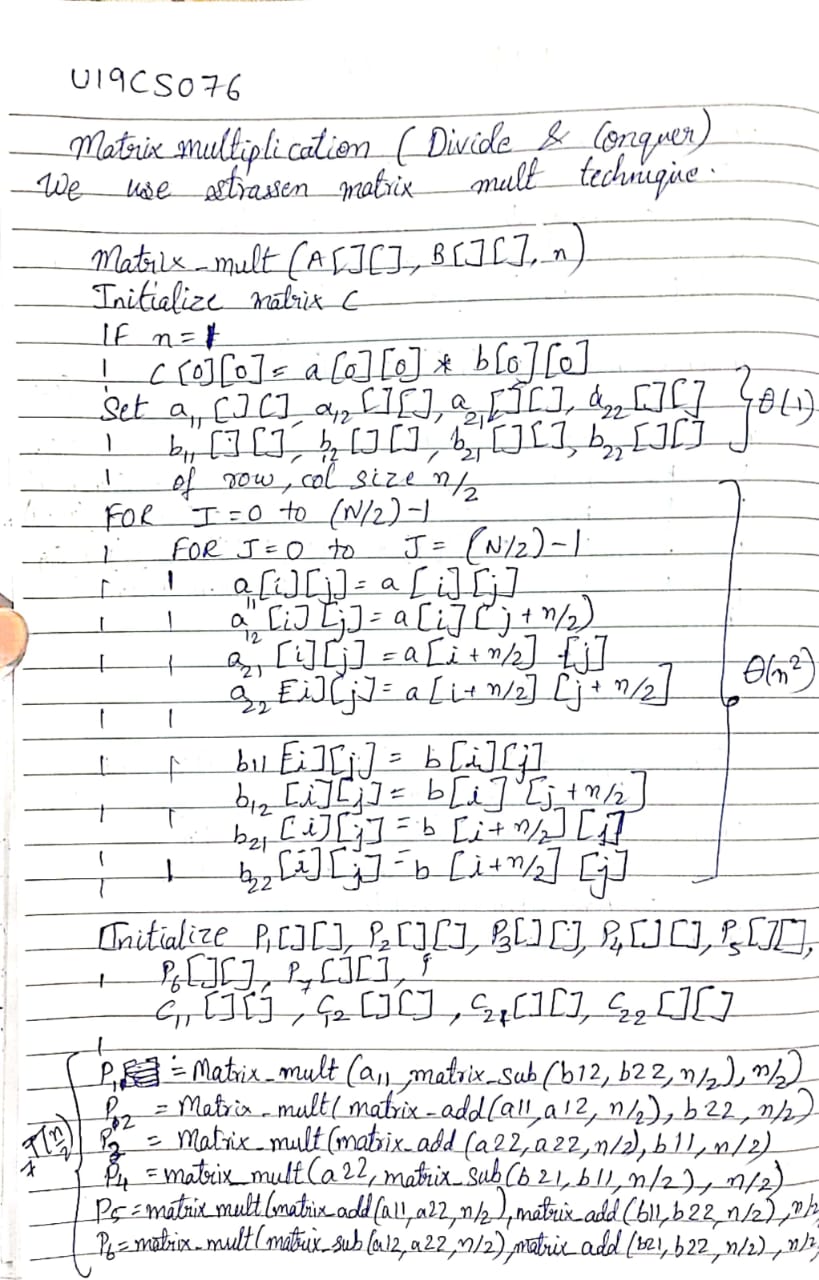 U19CS076
Matrix multiplication ( Divide & Conquer)
We use strassen matrix mult technique.
Matrix_mult (A[][], B[][], n)
Initialize matrix C
IF n=1
C[0][0] = a[0][0] * b[0][0]
Set a11[][], a12[][], a21[][], a22[][] } θ(1)
b11[][], b12[][], b21[][], b22[][]
of row, col size n/2
FOR I=0 to (N/2)-1
FOR J=0 to J= (N/2)-1
a11[i][j] = a[i][j]
a12[i][j] = a[i][j+n/2)
a21[i][j] = a[i+n/2] [j] θ(n²)
a22[i][j] = a[i+n/2] [j+n/2]
b11[i][j] = b[i][j]
b12[i][j] = b[i][j+n/2]
b21[i][j] = b[i+n/2][j]
b22[i][j] = b[i+n/2] [j]
Initialize P1[][], P2[][], P3[][], P4[][], P5[][],
P6[][], P7[][],
C11[][], C12[][], C21[][], C22[][]
P1 = Matrix_mult (a11, matrix_sub (b12, b22, n/2), n/2)
P2 = Matrix_mult( matrix_add(a11, a12, n/2), b22, n/2)
P3 = Matrix_mult(matrix_add (a22, a22, n/2), b11, n/2)
P4 = matrix_mult (a22, matrix_sub (b21, b11, n/2), n/2)
P5 = matrix_mult (matrix_add (a11, a22, n/2), matrix_add (b11, b22, n/2), n/2
P6 = matrix_mult ( matrix_sub (a12, a22, n/2), matrix_add (b21, b22, n/2), n/2,